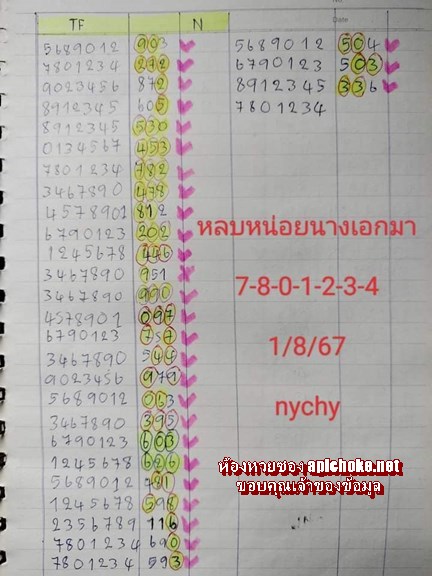 TF N
5689012 903
7801234 272
9023456 872
8912345 605
8912345 530
0134567 453
7801234 782
3467890 478
4578901 812
6790123 202
1245678 446
3467890 951
3467890 990
4578901 097
6790123 757
3467890 544
9023456 979
5689012 013
3467890 395
6790123 603
1245678 626
5689012 781
1245678 598
2356789 116
7801234 690
7801234 593
Date
5689012 504
6790123 503
8912345 336
7801234
หลบหน่อยนางเอกมา
7-8-0-1-2-3-4
1/8/67
nychy
ห้องหวยซอง apichoke.net
ขอบคุณเจ้าของข้อมูล